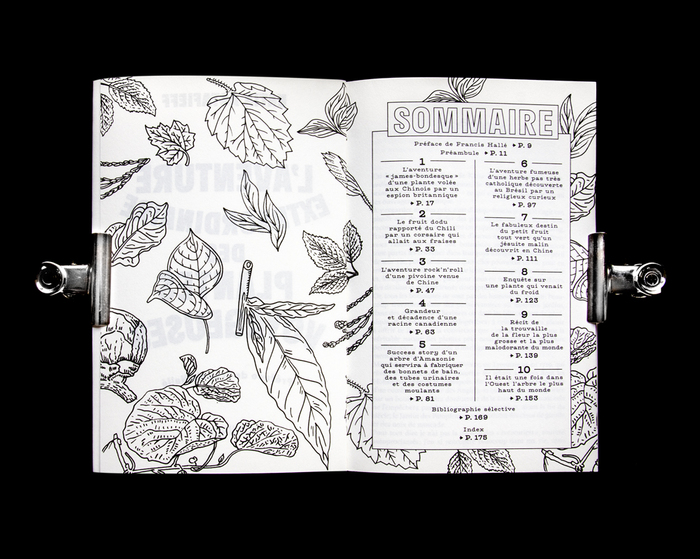 SOMMAIRE
Préface de Francis Hallé ▸ P. 9
Préambule ▸ P. 11
1
L'aventure
« james-bondesque »
d'une plante volée
aux Chinois par un
espion britannique
▸ P. 17
2
Le fruit dodu
rapporté du Chili
par un corsaire qui
allait aux fraises
▸ P. 33
3
L'aventure rock'n'roll
d'une pivoine venue
de Chine
▸ P. 47
4
Grandeur
et décadence d'une
racine canadienne
▸ P. 63
5
Success story d'un
arbre d'Amazonie
qui servira à fabriquer
des bonnets de bain,
des tubes urinaires
et des costumes
moulants
▸ P. 81
6
L'aventure fumeuse
d'une herbe pas très
catholique découverte
au Brésil par un
religieux curieux
▸ P. 97
7
Le fabuleux destin
du petit fruit
tout vert qu'un
jésuite malin
découvrit en Chine
▸ P. 111
8
Enquête sur
une plante qui venait
du froid
▸ P. 123
9
Récit de
la trouvaille
de la fleur la plus
grosse et la plus
malodorante du monde
▸ P. 139
10
Il était une fois dans
l'Ouest l'arbre le plus
haut du monde
▸ P. 153
Bibliographie sélective
▸ P. 169
Index
▸ P. 175